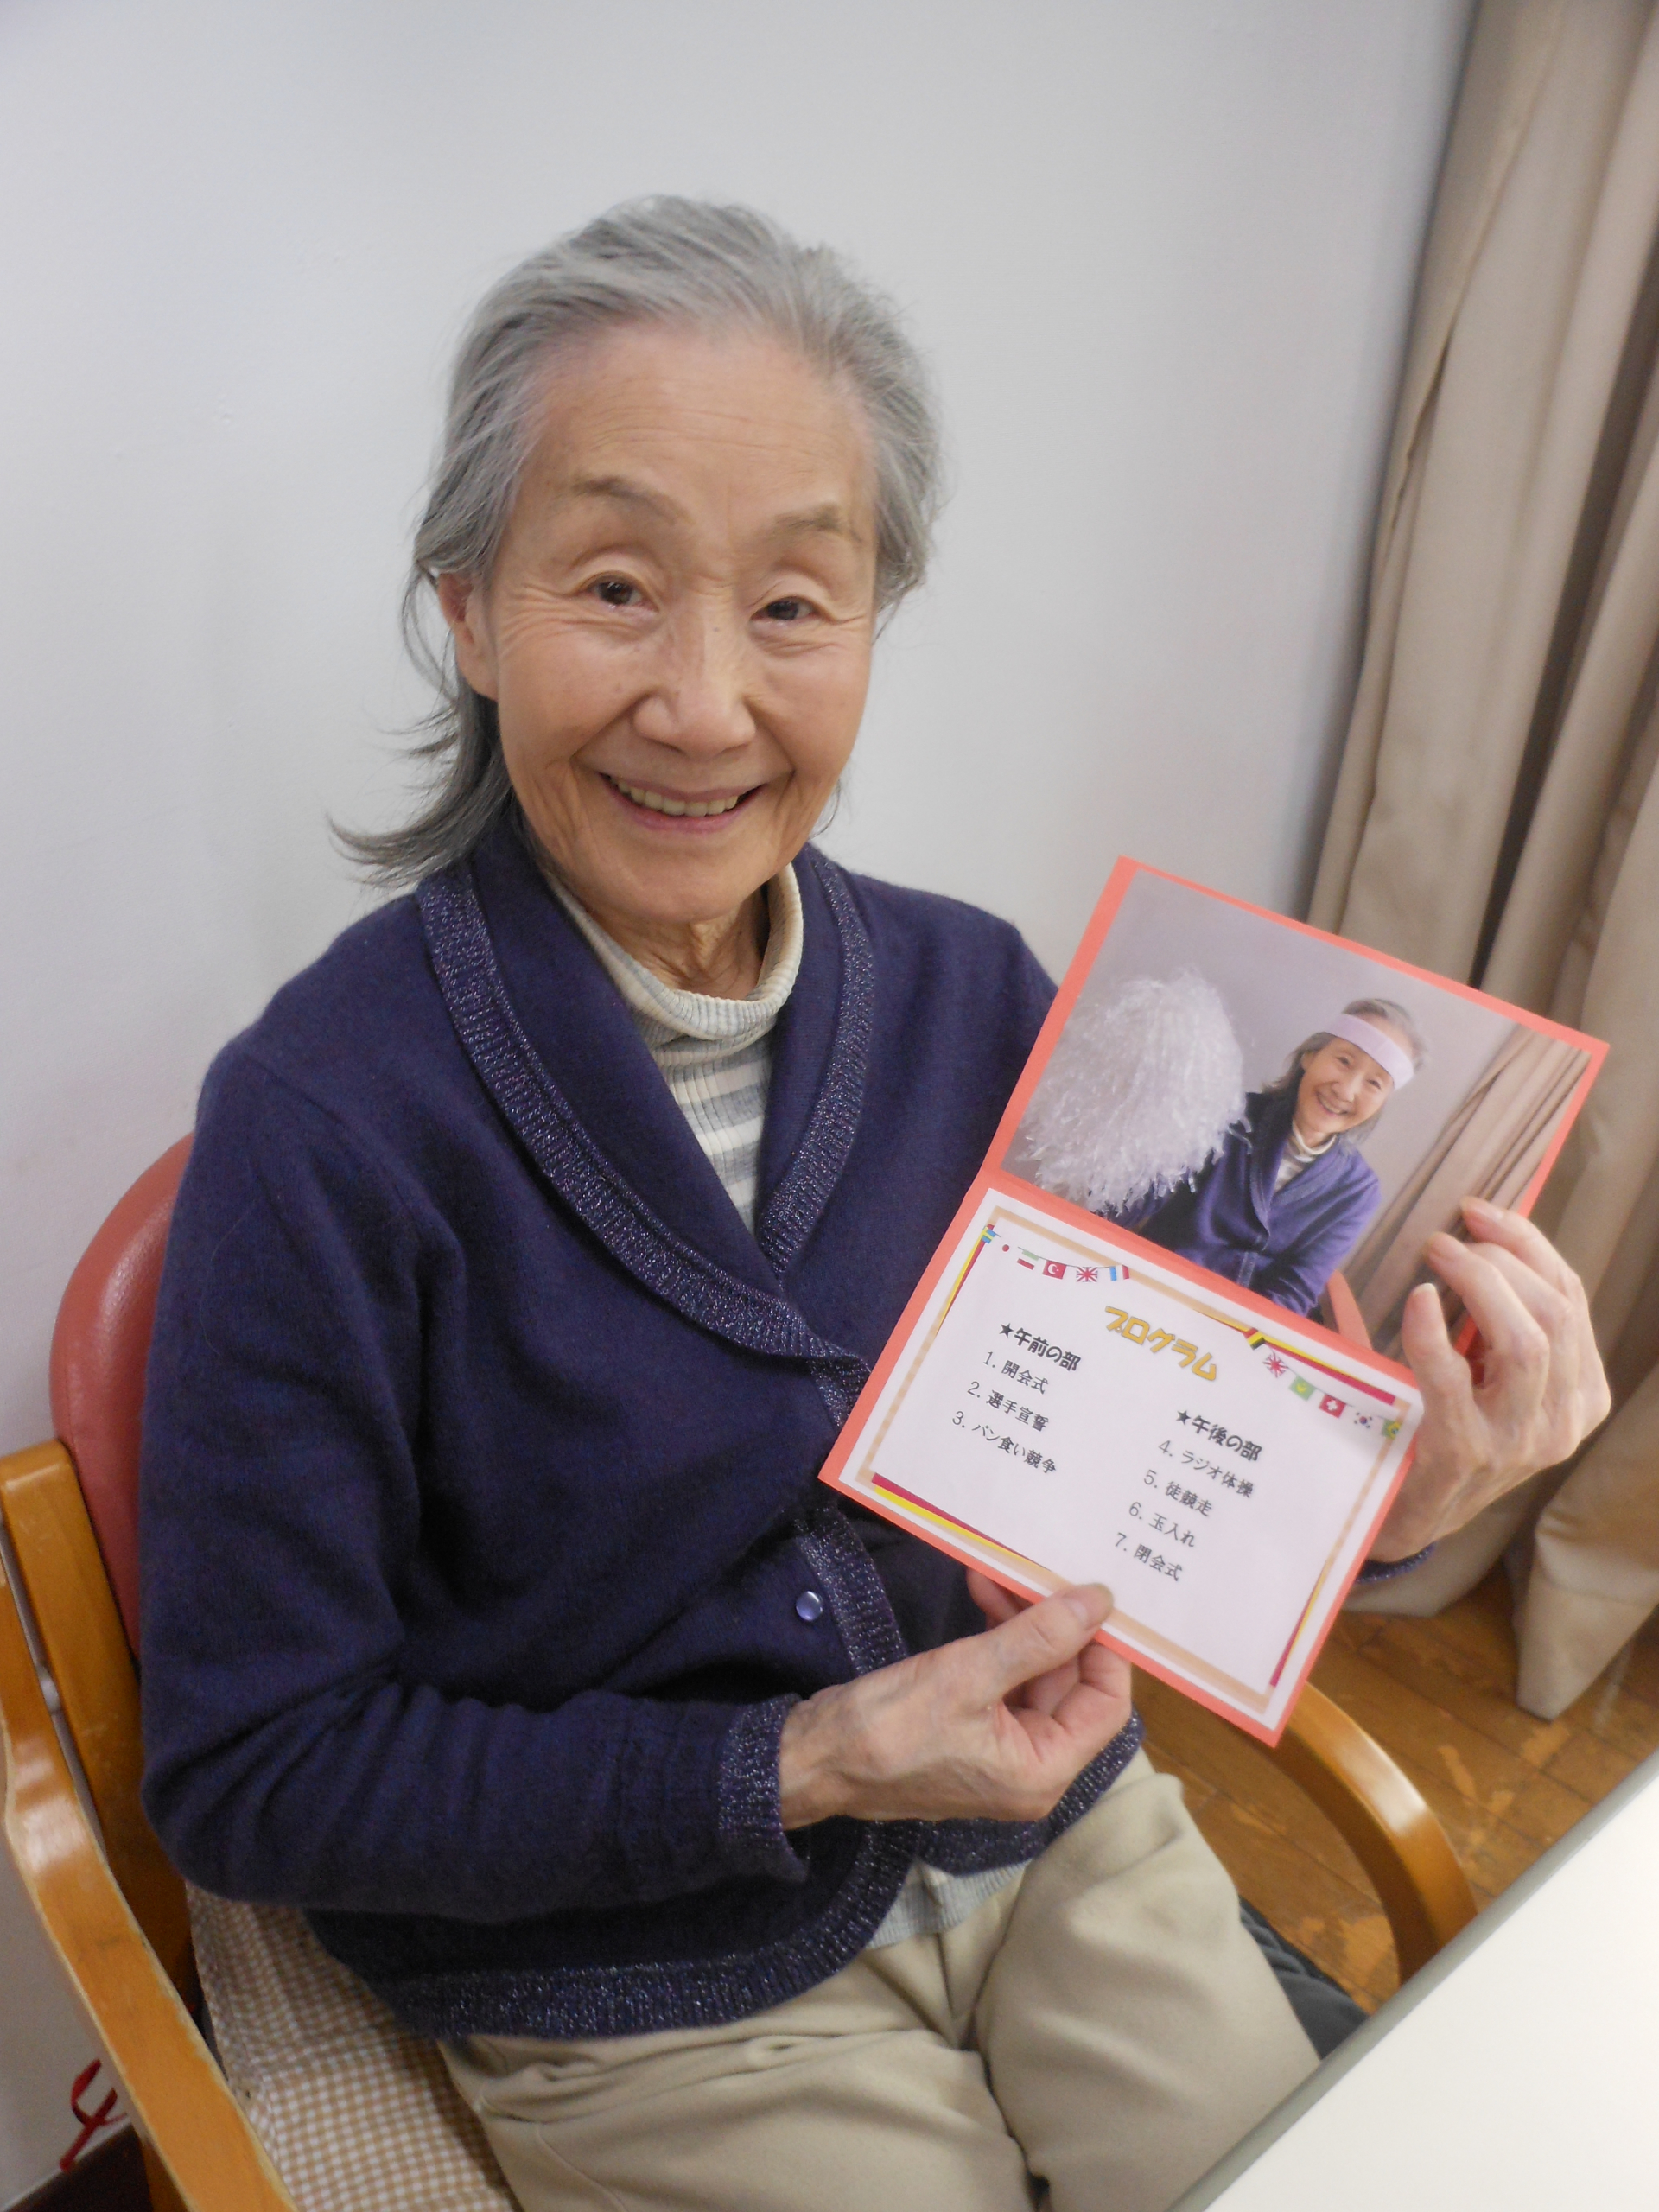 プログラム
★午前の部
1. 開会式
2. 選手宣誓
3. パン食い競争
★午後の部
4. ラジオ体操
5. 徒競走
6. 玉入れ
7. 閉会式